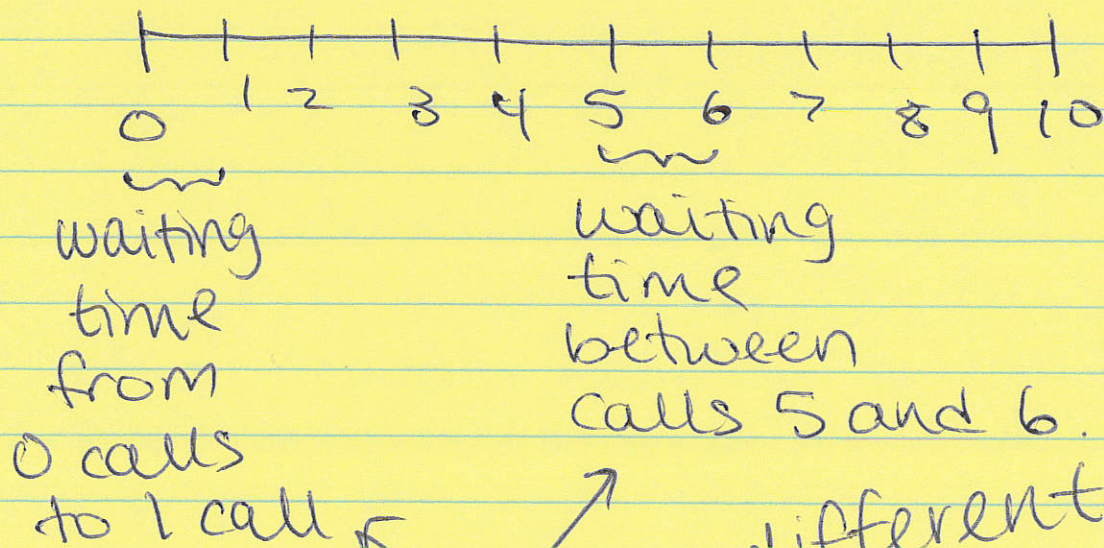 0 1 2 3 4 5 6 7 8 9 10
waiting
time
from
0 calls
to 1 call
waiting
time
between
calls 5 and 6.
different